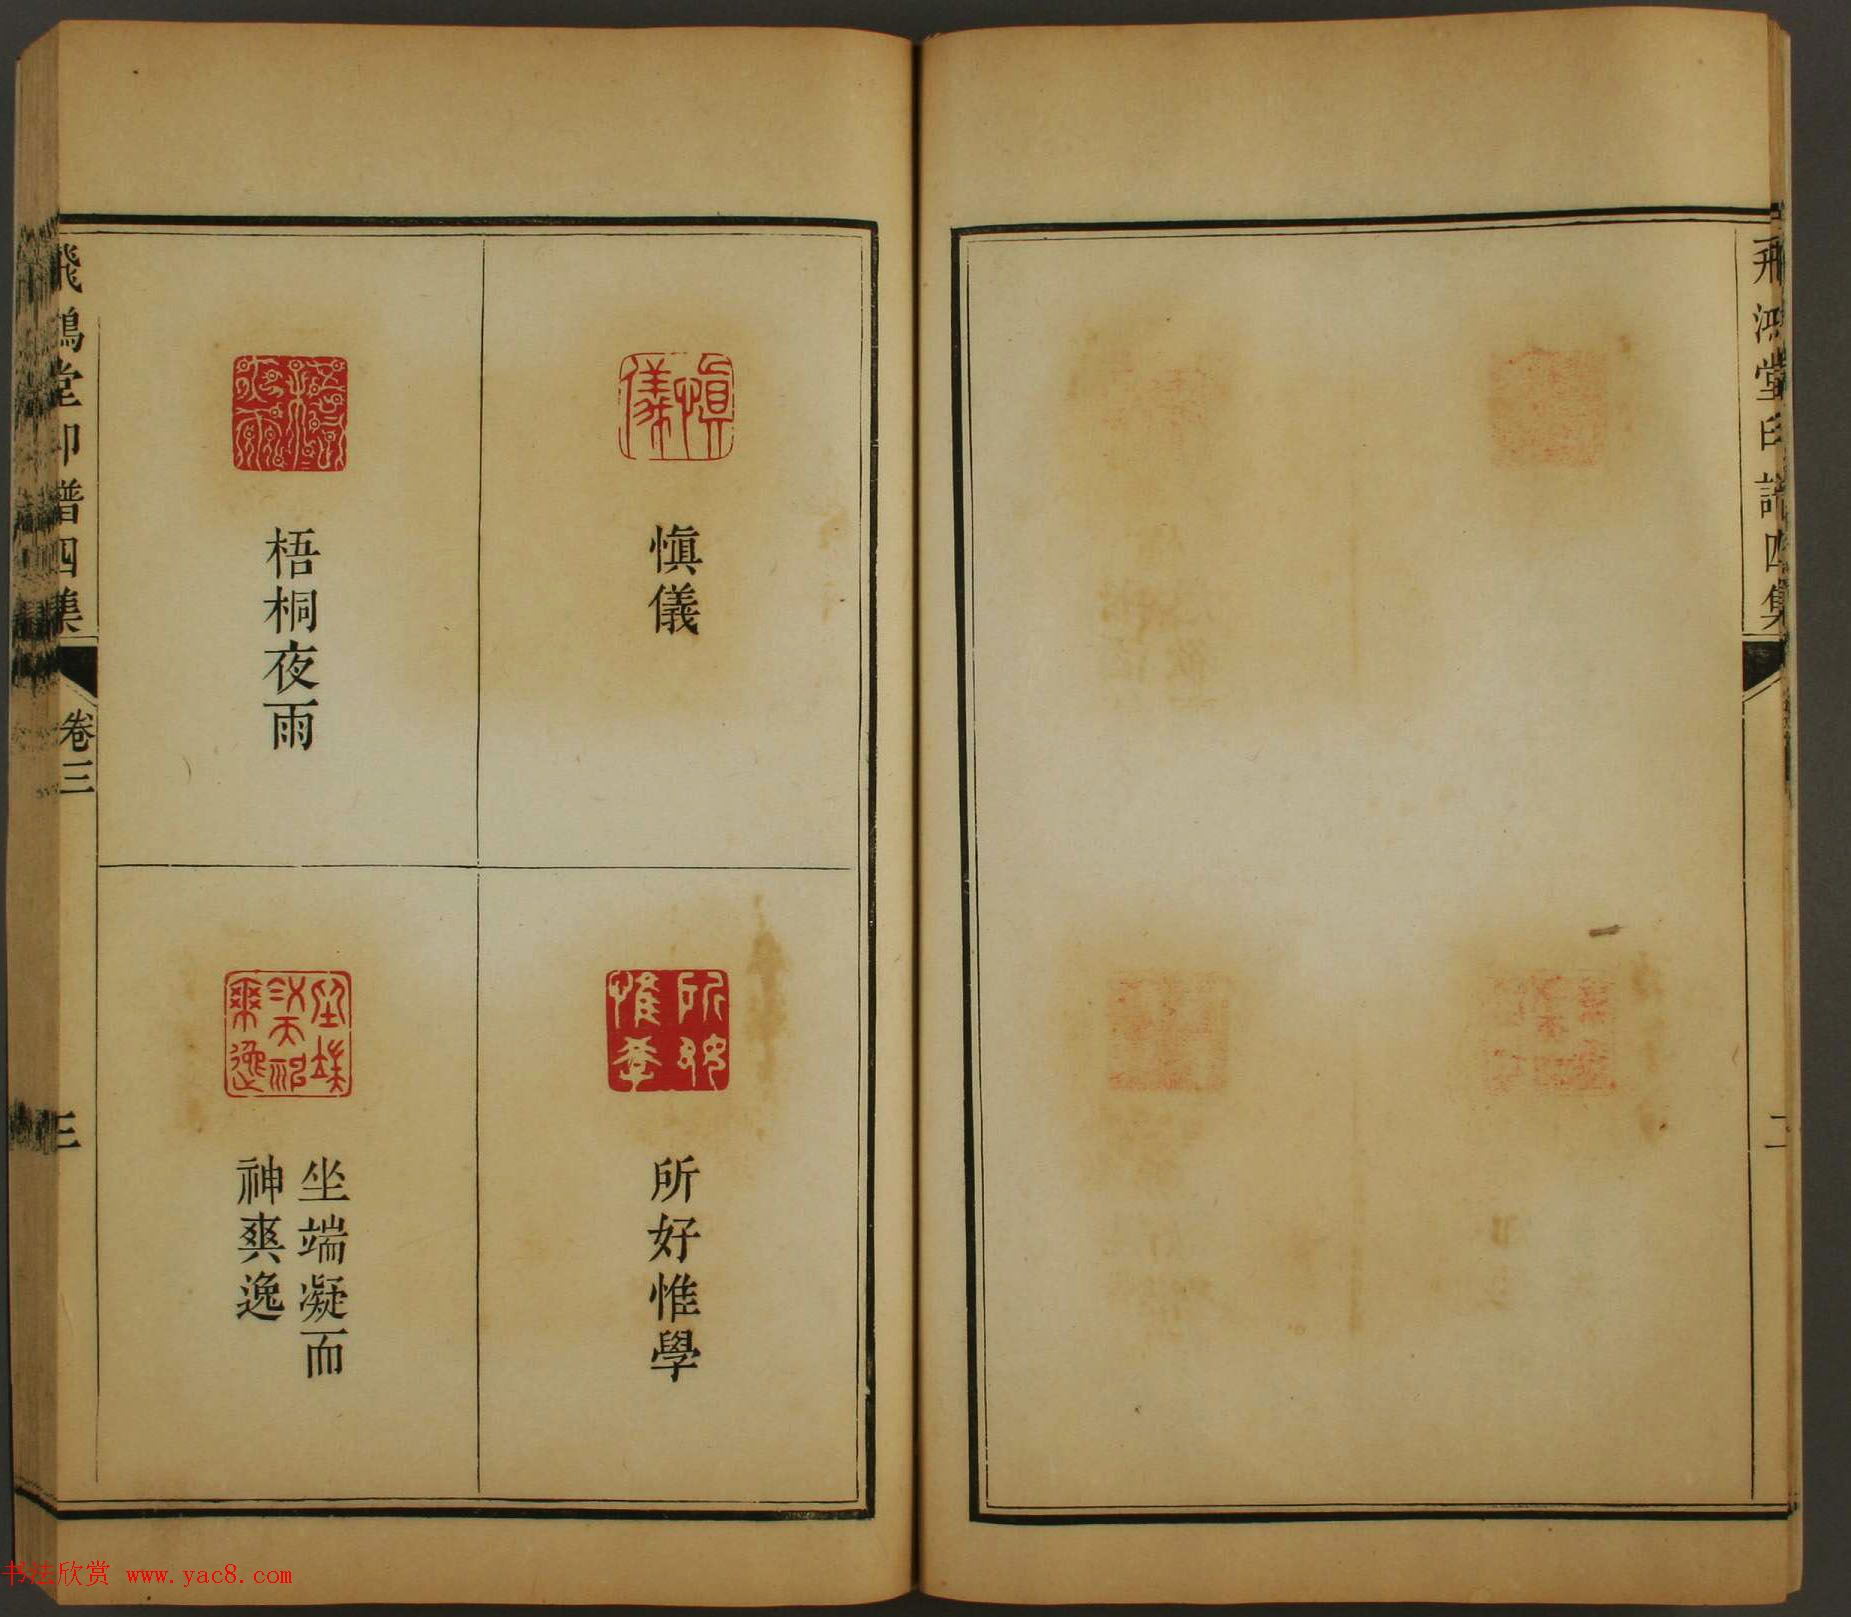 飛鴻堂印譜四集
二
慎儀
所好惟學
梧桐夜雨
坐端凝而
神爽逸
飛鴻堂印譜四集
卷三
三
书法欣赏 www.yac8.com